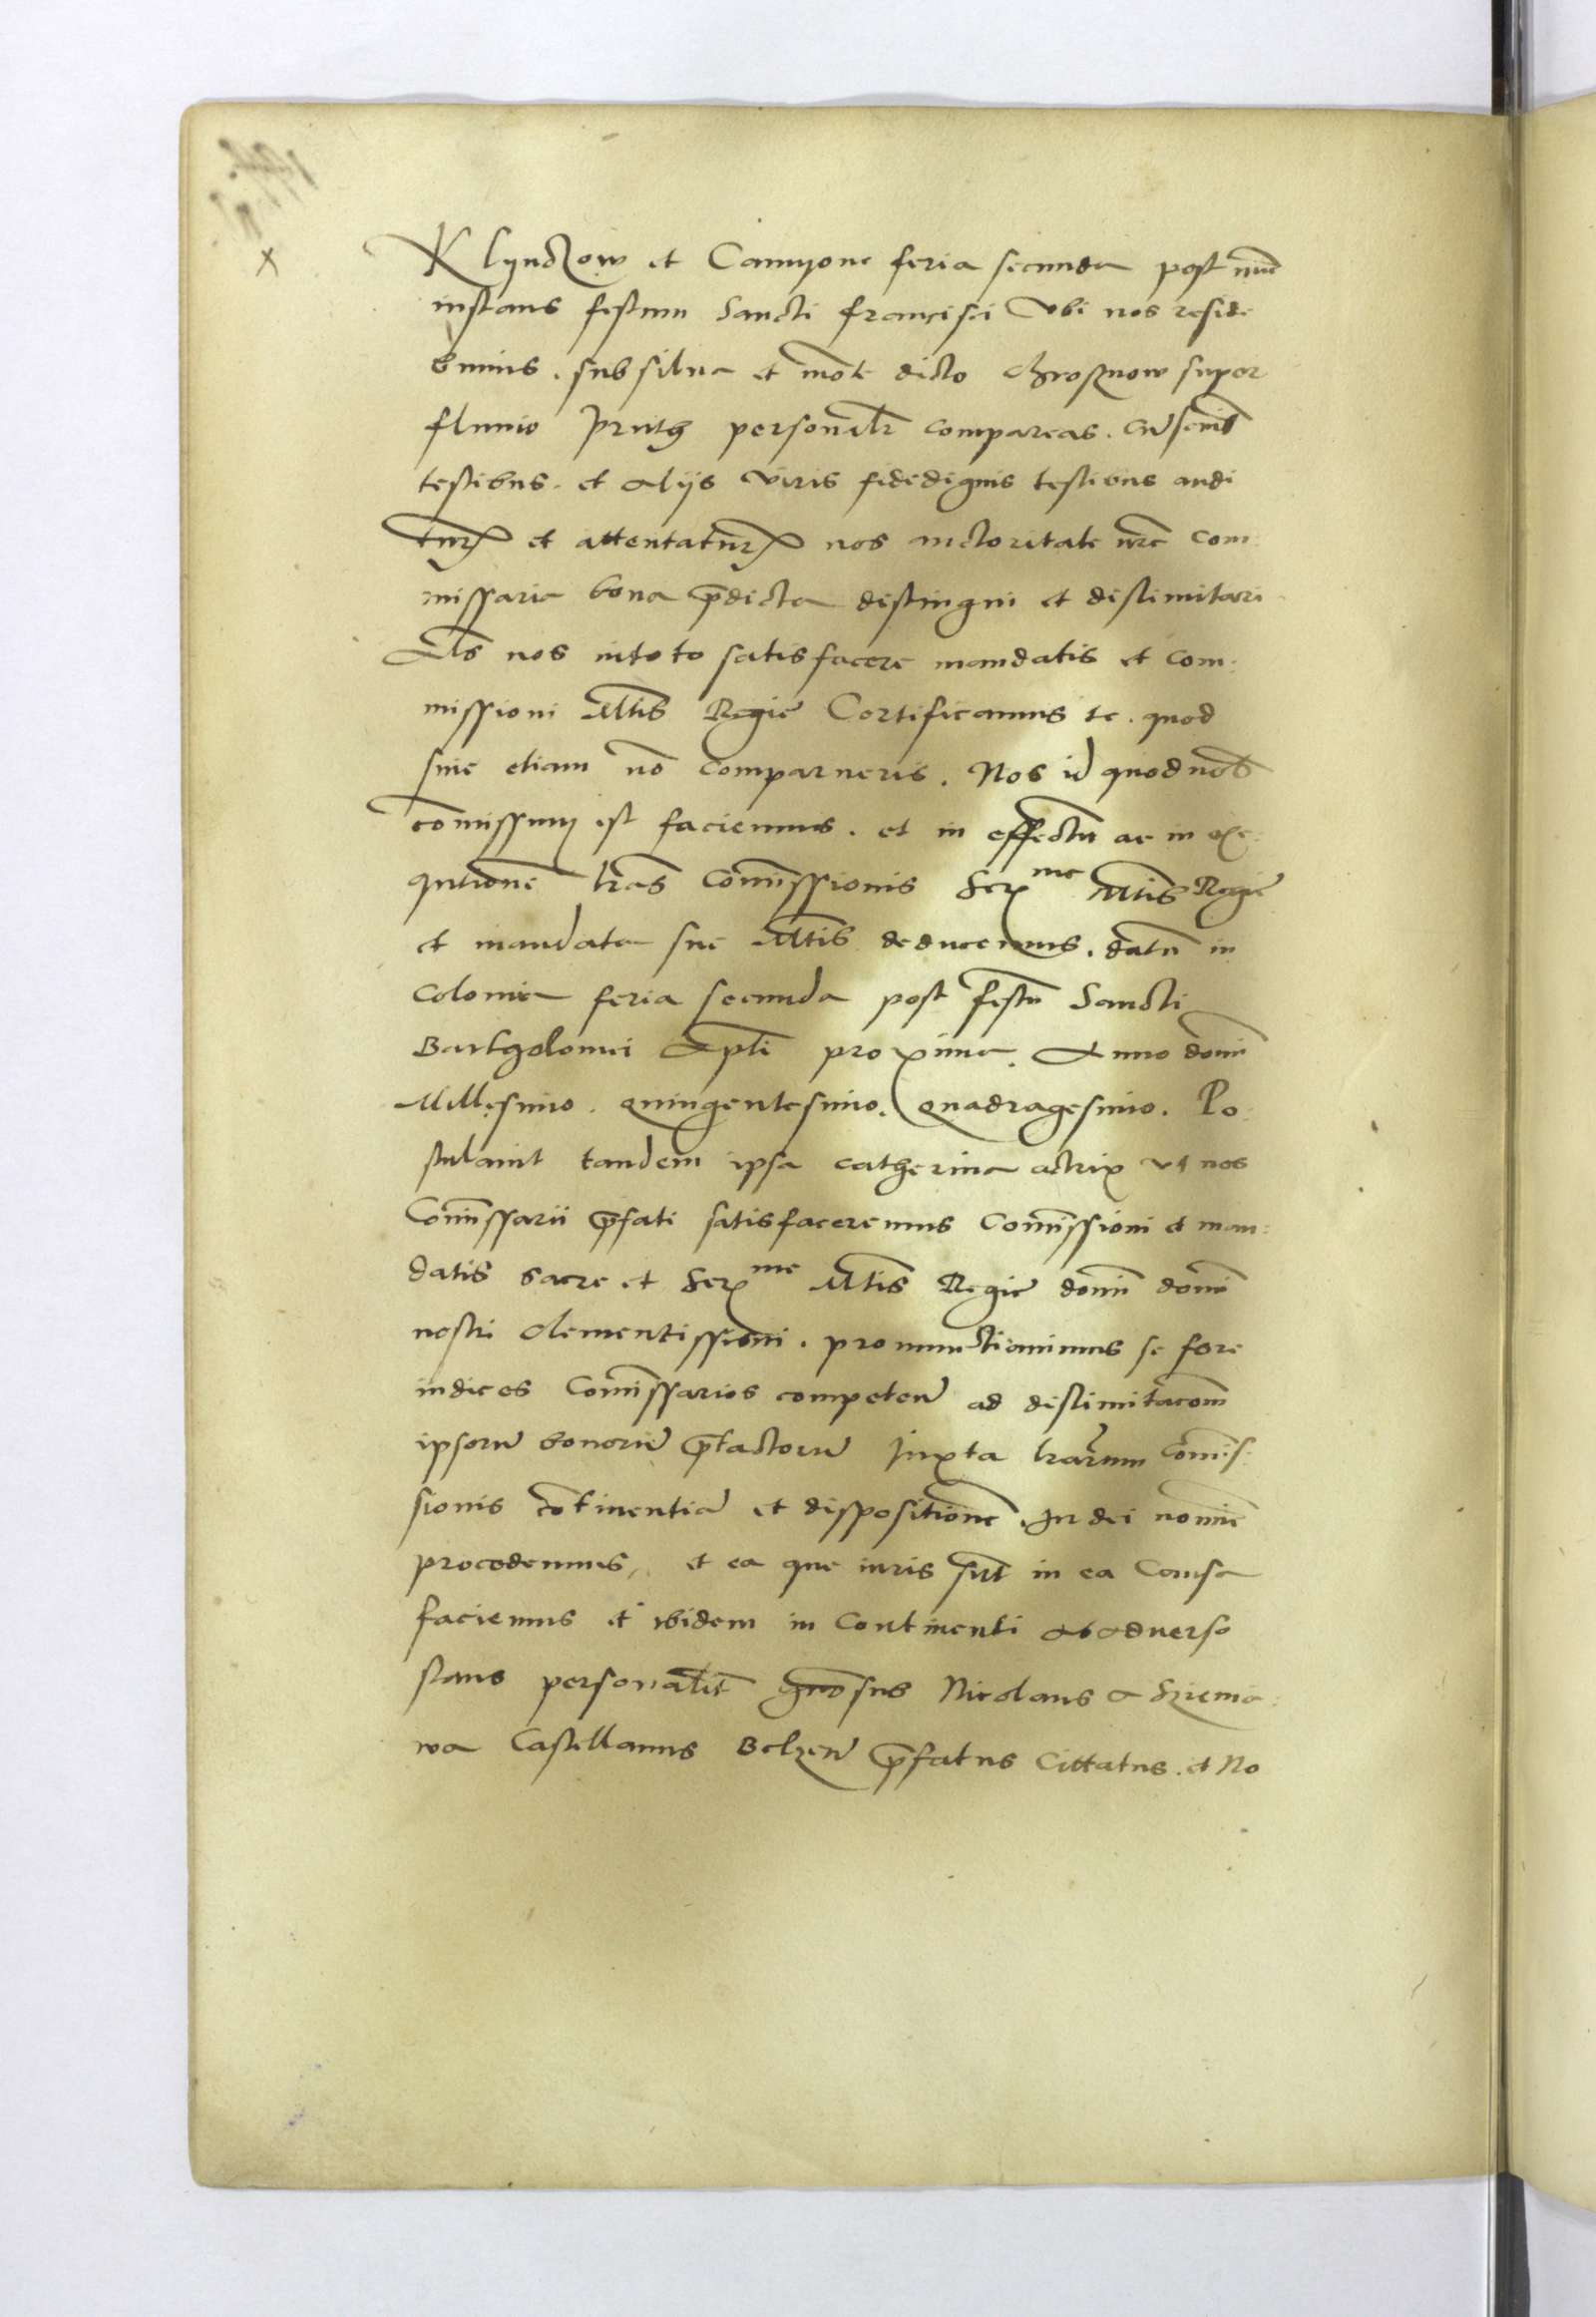 Klyndzow et Camyone feria secunda post nūc
instans festum Sancti francisci Vbi nos reside
bimus . sub silua et mōte dicto Chrosznow super
fluuio Pruth personalr̄ compareas . cū senib9
testibus . et alijs viris fidedignis testibus audi
turus et attentaturus nos auctoritate nr̄e com:
missaria bona p̄dicta distingui et dislimitari
Als̄ nos intoto satisfacere mandatis et com:
missioni Mt̄is Regie Certificamus te . quod
siue etiam nō comparueris . Nos id quod nob̄
cōmissum est faciemus . et in effectū ac in exe:
qutionē lrā̄s Com̄issionis Serme Mt̄is Regie
et mandata sue Mt̄is deducemus . datū in
Colomia feria secunda post festū Sancti
Bartholomei Apl̄i proxima . Anno domī
Millesimo . quingentesimo . quadragesimo . Po:
stulauit tandem ipsa catherina actrix vt nos
Com̄issarii p̄fati satisfaceremus Com̄issioni et man:
datis sacre et Serme Mt̄is Regie domī domī
nostri clementissimi . pronunctiauimus se fore
iudices Com̄issarios competen̄ ad dislimitacōm
ipsorū bonorū p̄tactorū Iuxta lrā̄rum Com̄is:
sionis cōtinentiā et dispositionē . In dei nomīe
procedemus, et ea que iuris sūt in ea Causa
faciemus et ibidem in Continenti ab aduerso
stans personalit̄ gn̄osus Nicolaus a Szienia:
wa Castellanus Belzen̄ p̄fatus Cittatus . et No